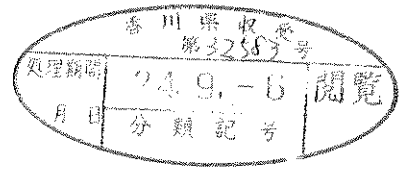 香川県収受
第32583号
処理期間
24.9.-6
閲覧
月 日
分類記号